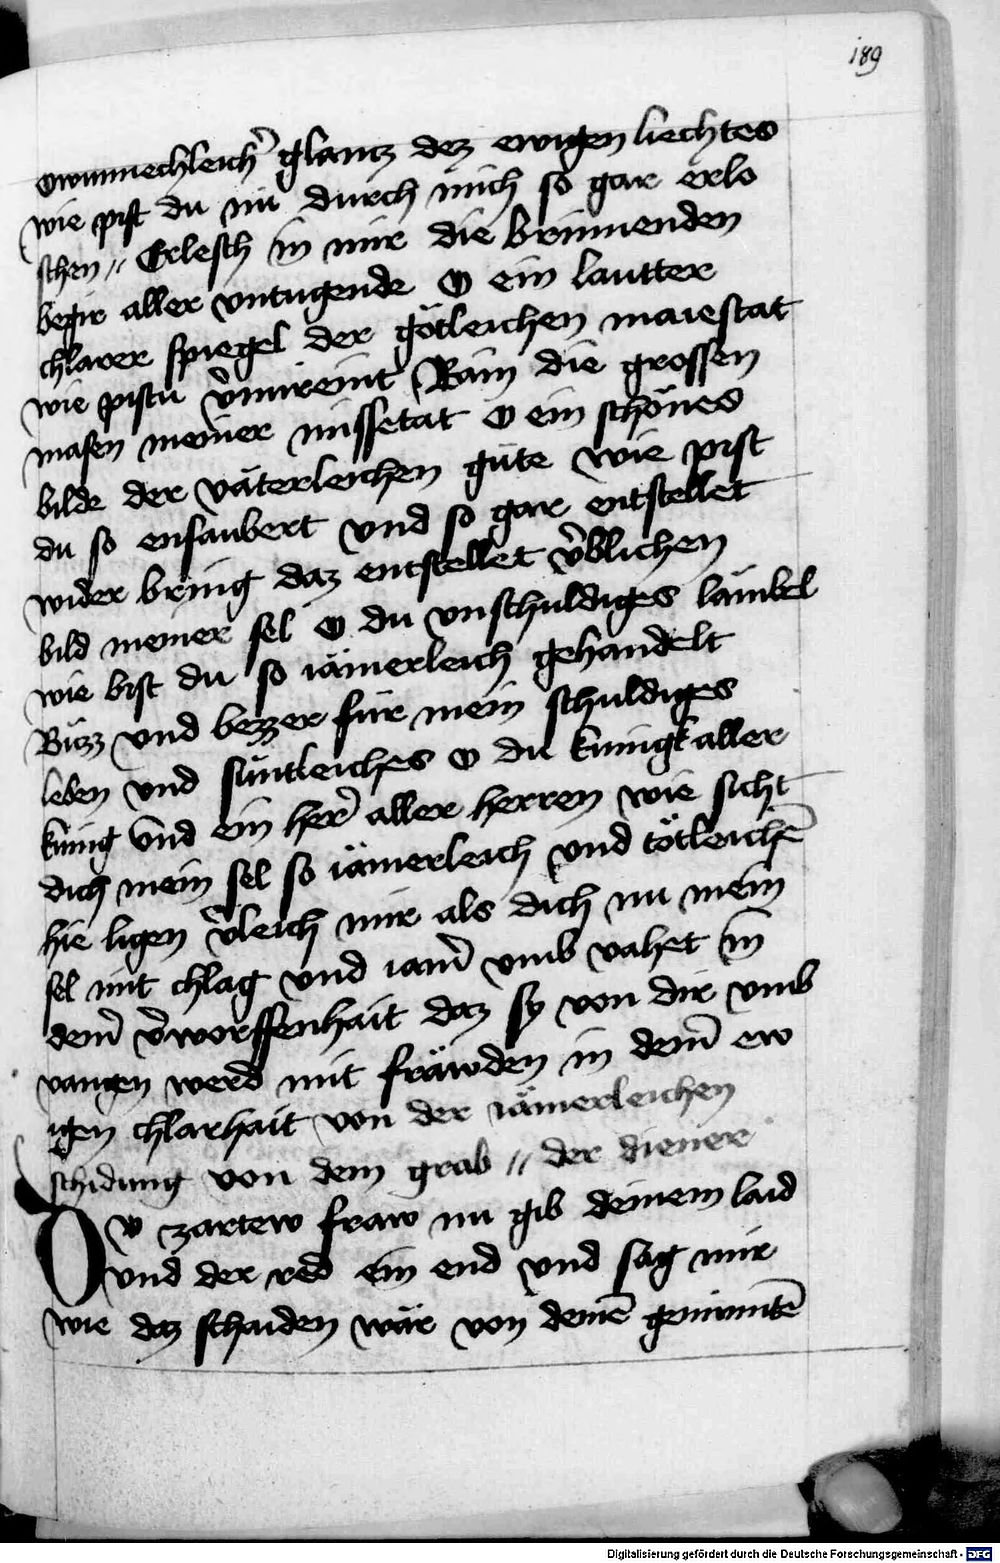 189
owunnechleich̉ glantz dez ewigen liechtes
wie pist du nu durch mich so gar erlo
schen // Erlesch in mir die brinnenden
begir aller vntugende O ein lautter
chlarer spiegel der götleichen maiestat
wie pistu v̉mireint Rain die grossen
masen meiner missetat O ein schönes
bilde der väterleichen güte wie pist
du so ensaubert vnd so gar entstellet
wider bring daz entstellet v̉blichen
bild meiner sel O du vnschuldiges lämbel
wie bist du so iämerleich gehandelt
Büzz vnd bezzer für mein schuldiges
leben vnd süntleiches O du kunigk aller
kunig vnd ein her̉ aller herren wie sicht
dich mein sel so iämerleich vnd tötleichē
hie ligen v̉leich mir als dich nu mein
sel mit chlag vnd iam̉ vmb vahet in
dein̉ v̉worffenhait daz sy von dir vmb
vangen werd mit fräwden in dein̉ ew
igen chlarhait von der iämerleichen
schidung von dem grab // der diener
O v zartew fraw nu gib deinem laid
vnd der red ein end vnd sag mir
wie daz schaiden wär von deinē gemintē
Digitalisierung gefördert durch die Deutsche Forschungsgemeinschaft - DFG